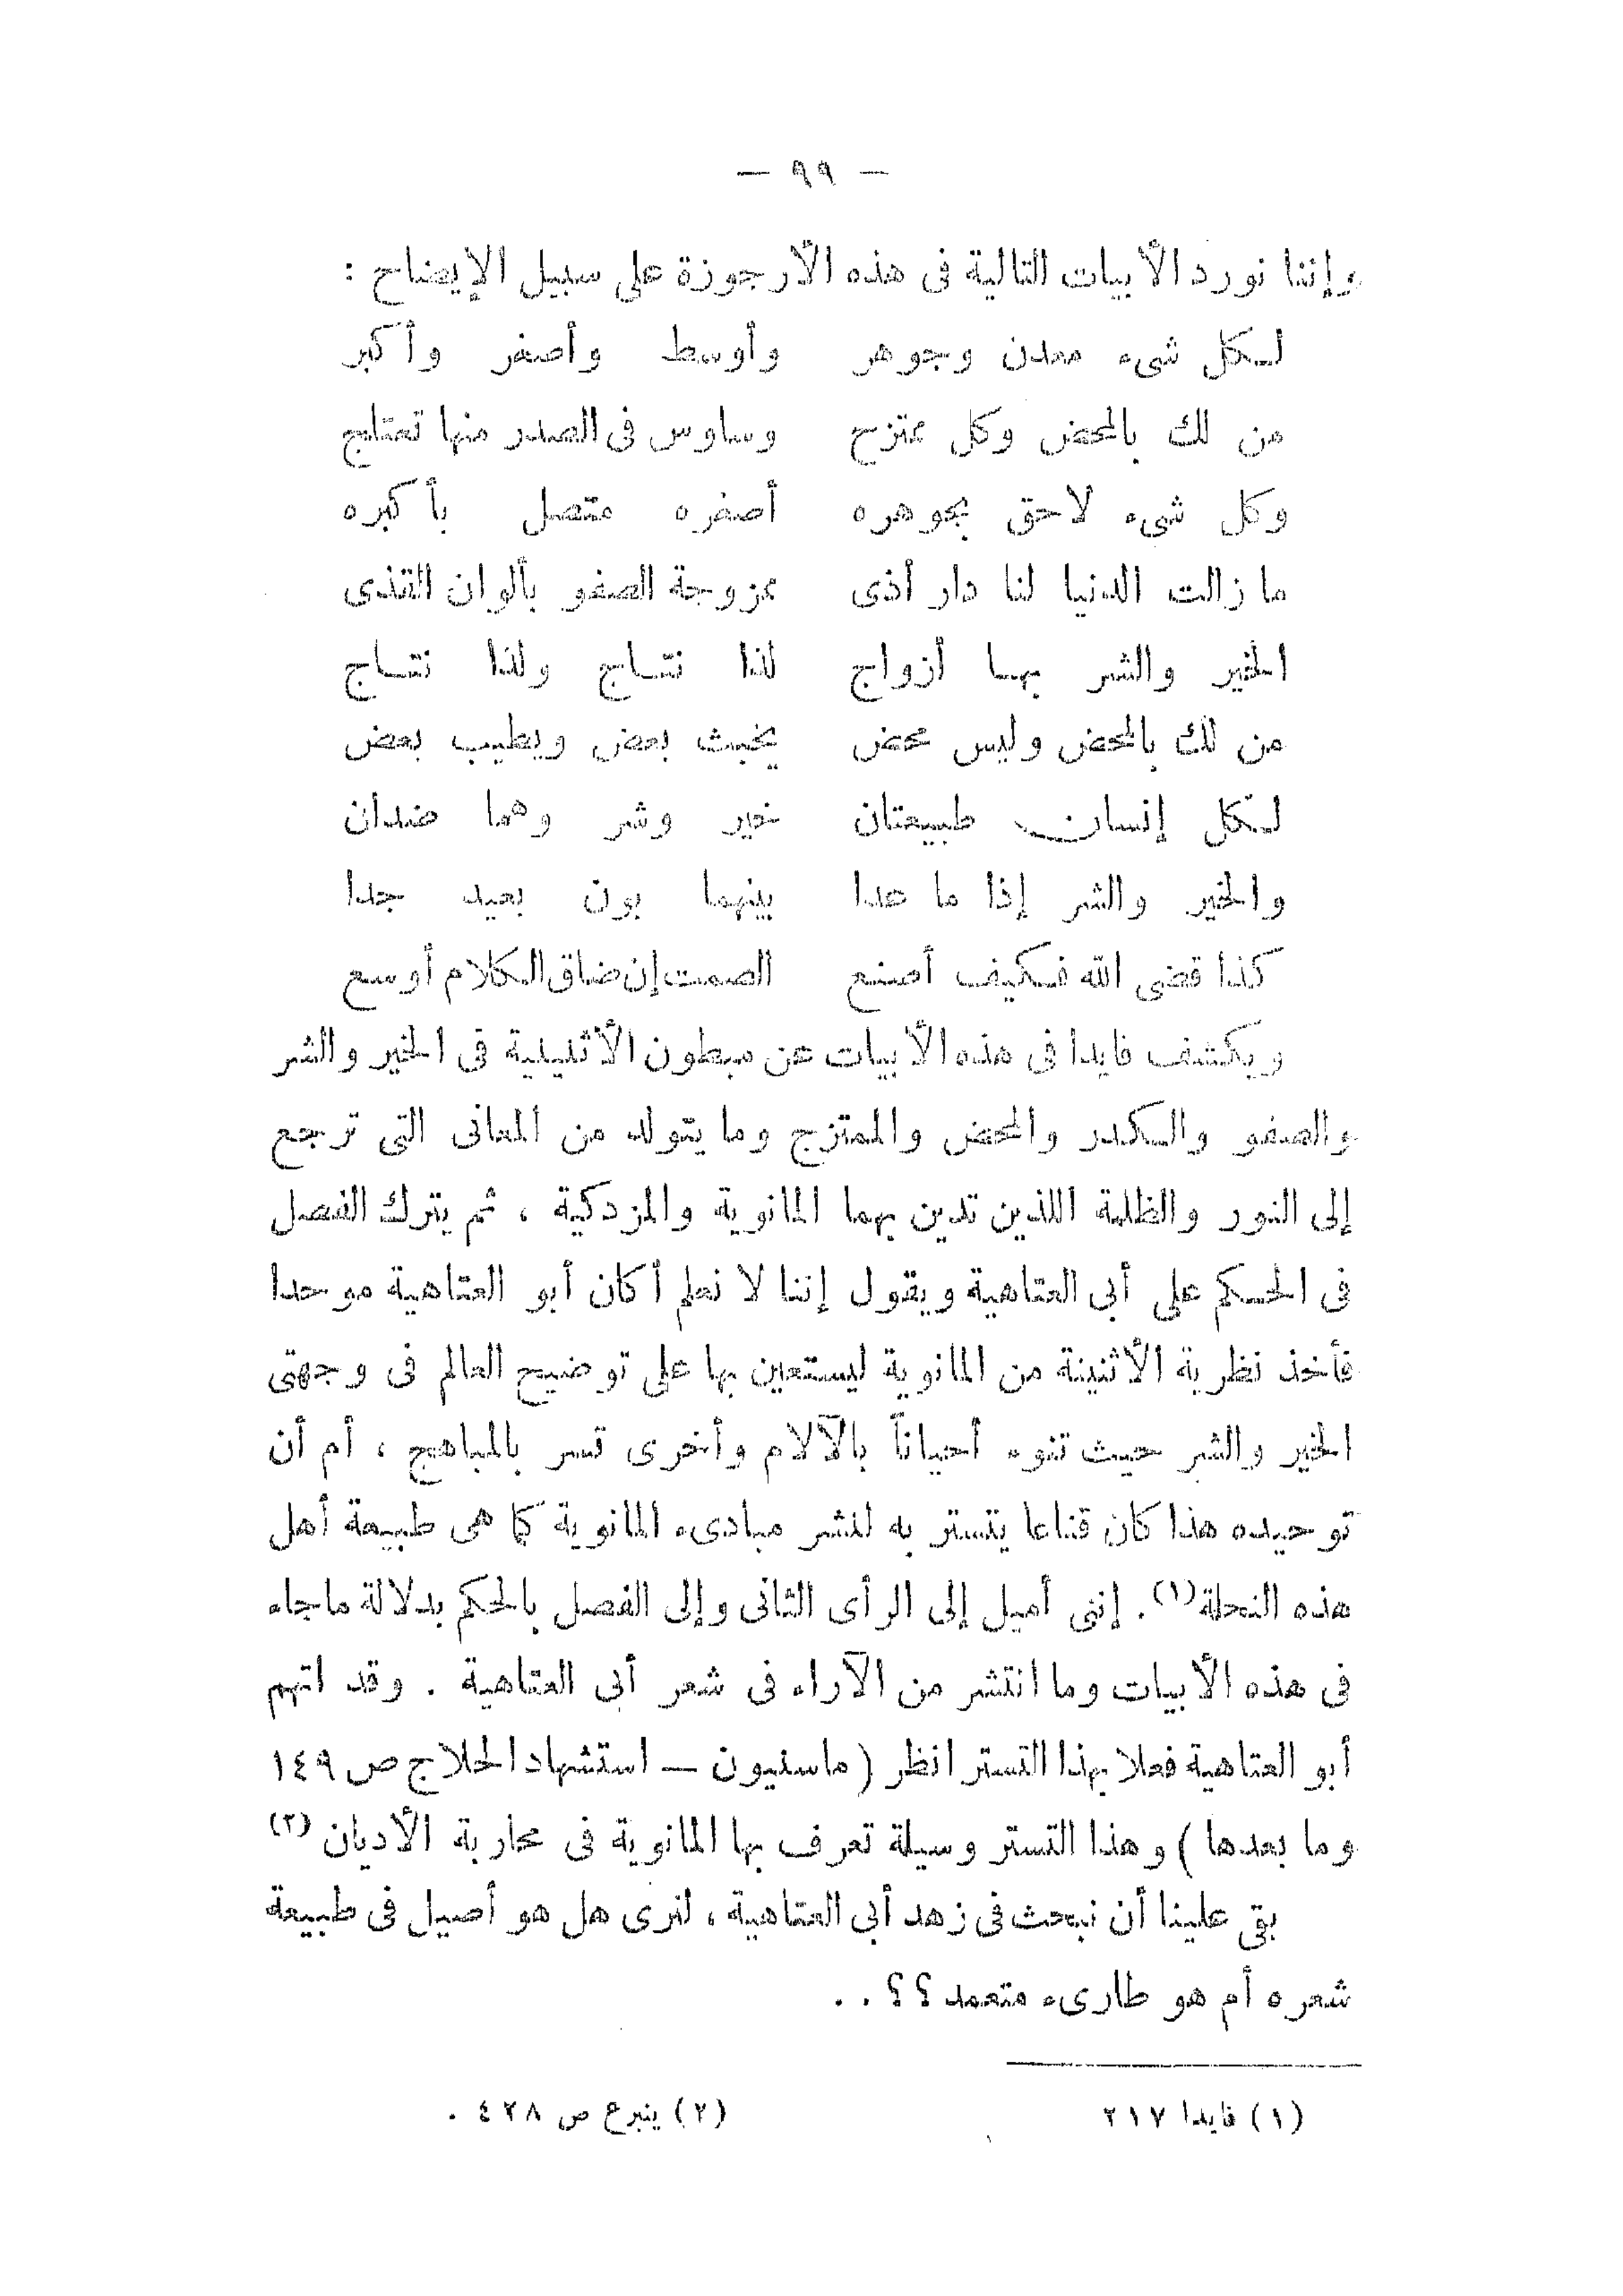 — ٩٩ —
وإننا نورد الأبيات التالية فى هذه الأرجوزة على سبيل الإيضاح :
لكل شىء معدن وجوهر وأوسط وأصغر وأكبر
من لك بالمحض وكل ممتزج وساوس فى الصدر منها تعتلج
وكل شىء لاحق بجوهره أصغره متصل بأكبره
ما زالت الدنيا لنا دار أذى ممزوجة الصفو بألوان القذى
الخير والشر بها أزواج لذا نتاج ولذا نتاج
من لك بالمحض وليس محض يخبث بعض ويطيب بعض
لكل إنسان طبيعتان خير وشر وهما ضدان
والخير والشر إذا ما عدا بينهما بون بعيد جدا
كذا قضى الله فكيف أصنع الصمت إن ضاق الكلام أوسع
ويكشف فايدا فى هذه الأبيات عن مبطون الأثنينية فى الخير والشر
والصفو والكدر والمحض والممتزج وما يتولد من المعانى التى ترجع
إلى النور والظلمة اللذين تدين بهما المانوية والمزدكية ، ثم يترك الفصل
فى الحكم على أبى العتاهية ويقول إننا لا نعلم أكان أبو العتاهية موحدا
فأخذ نظرية الأثنينة من المانوية ليستعين بها على توضيح العالم فى وجهتى
الخير والشر حيث تنوء أحياناً بالآلام وأخرى تسر بالمباهج ، أم أن
توحيده هذا كان قناعا يتستر به لنشر مبادىء المانوية كما هى طبيعة أهل
هذه النحلة (١) . إننى أميل إلى الرأى الثانى وإلى الفصل بالحكم بدلالة ما جاء
فى هذه الأبيات وما انتشر من الآراء فى شعر أبى العتاهية . وقد اتهم
أبو العتاهية فعلا بهذا التستر انظر ( ماسنيون — استشهاد الحلاج ص ١٤٩
وما بعدها ) وهذا التستر وسيلة تعرف بها المانوية فى محاربة الأديان (٢)
بقى علينا أن نبحث فى زهد أبى العتاهية ، لنرى هل هو أصيل فى طبيعة
شعره أم هو طارىء متعمد ؟ ؟ . .
(١) فايدا ٢١٧ (٢) ينبرع ص ٤٢٨ .